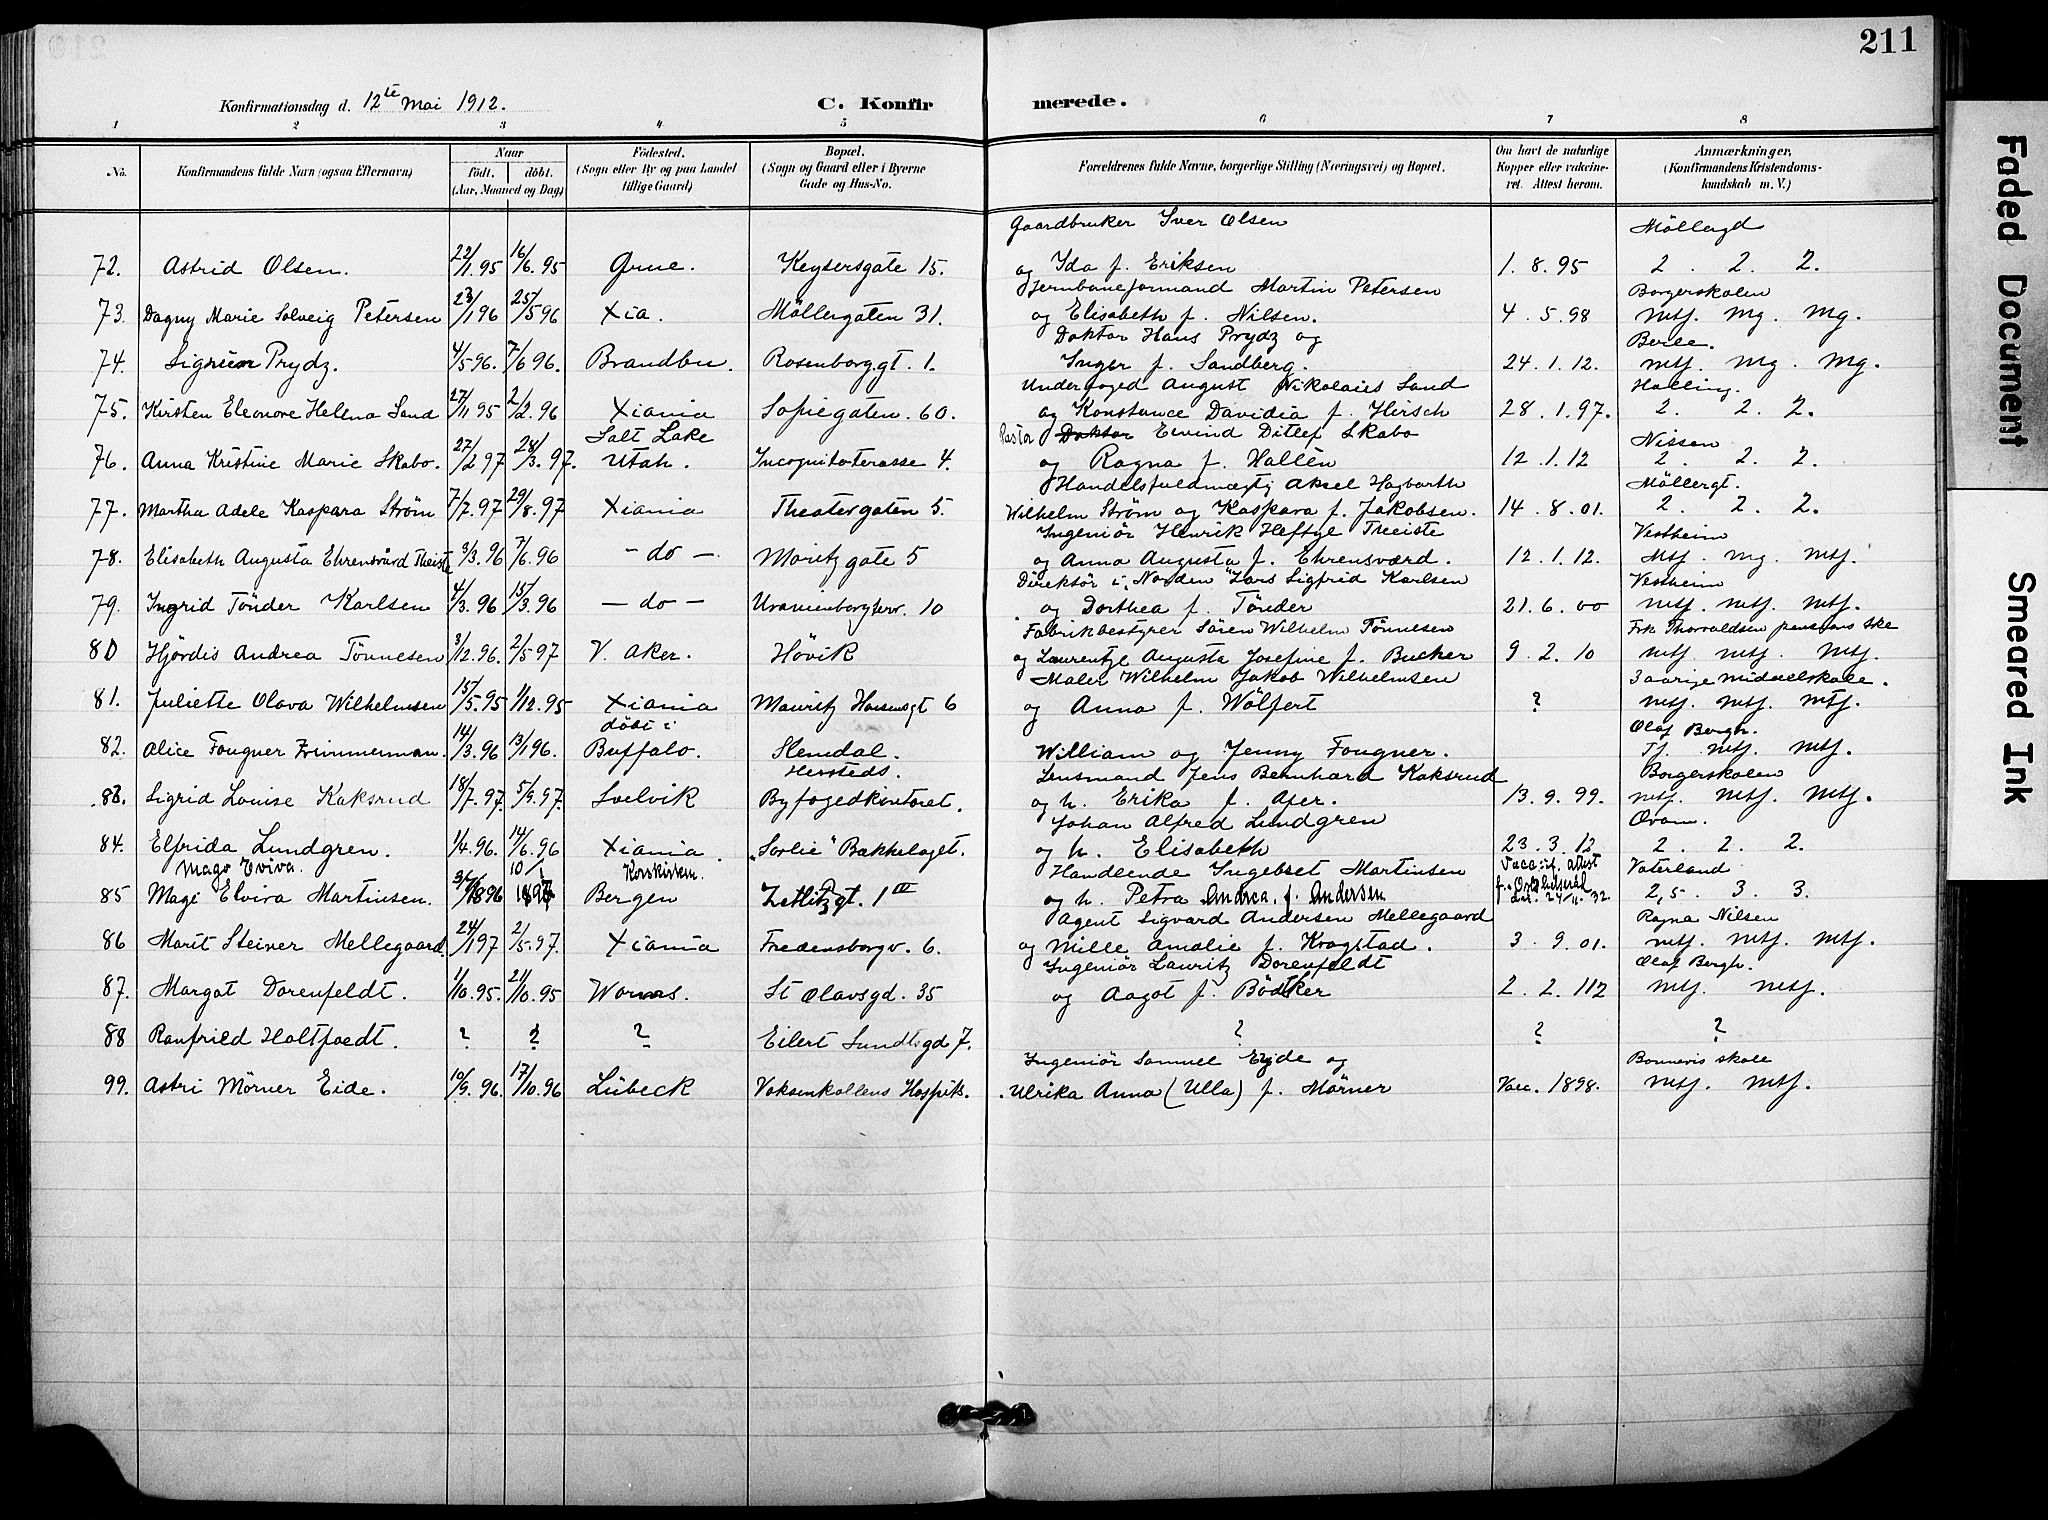 211
Konfirmationsdag d. 12te Mai 1912. C. Konfirmerede.
1 2 3 4 5 6 7 8
No. Konfirmandens fulde Navn (ogsaa Efternavn) Naar født. døbt. (Aar, Maaned og Dag) Fødested. (Sogn eller By og paa Landet tillige Gaard) Bopæl. (Sogn og Gaard eller i Byerne Gade og Hus-No. Forældrenes fulde Navne, borgerlige Stilling (Næringsvei) og Bopæl. Om havt de naturlige Kopper eller vakcineret. Attest herom. Anmærkninger. (Konfirmandens Kristendomskundskab m. V.)
Gaardbruker Iver Olsen Möllergd
72. Astrid Olsen. 22/1.95 16/6.95 Grue. Keysersgate 15. og Ida f. Eriksen 1.8.95 2. 2. 2.
Jernbaneformand Martin Petersen Borgerskolen
73. Dagny Marie Solveig Petersen 23/1 96 25/5 96 Xia. Möllergaten 31. og Elisabeth f. Nilsen. 4.5.98 mtf. mg. mg.
Doktor Hans Prydz og Berle.
74. Sigrun Prydz. 4/5 96. 7/6 96. Brandbu. Rosenborggt. 1. Inger f. Sandberg. 24.1.12. mtf. mg. mg.
Underfoged August Nikolaies Sand Halling.
75. Kirsten Eleonore Helena Sand 27/11 95 2/2.96 Xiania Sofiegaten. 60. og Konstance Davidia f. Hirsch 28.1.97. 2. 2. 2.
Salt Lake Pastor Doktor Eivind Ditlef Skabo Nissen
76. Anna Kristine Marie Skabo. 27/2 97 28/3.97. Utah. Incognitoterasse 4. og Ragna f. Hallèn 12.1.12 2. 2. 2.
Handelsfuldmægtig Aksel Hagbarth Möllergt.
77. Martha Adele Kaspara Strøm 7/7.97 29/8.97 Xiania Theatergaten 5. Wilhelm Strøm og Kaspara f. Jakobsen. 14.8.01. 2. 2. 2.
Ingeniör Henrik Heftye Theiste Vestheim
78. Elisabeth Augusta Ehrensvärd Theiste 3/3.96 7/6.96 - do - Moritzgate 5 og Anna Augusta f. Ehrensværd. 12.1.12. mtf. mg. mtf.
Direktör i "Norden" Lars Sigfrid Karlsen Vestheim
79. Ingrid Tönder Karlsen 4/3.96 15/3.96 - do - Uranienborgterr. 10 og Dorthea f. Tönder 21.6.00 mtf. mtf. mtf.
Fabrikbestyrer Sören Wilhelm Tönnesen Frk Thorvaldsen pensions ske
80 Hjördis Andrea Tönnesen 3/12.96. 2/5.97 V. Aker. Hövik og Laurentze Augusta Josefine f. Bucher 9.2.10 mtf. mtf. mtf.
Maler Wilhelm Jakob Wilhelmsen 3 aarige middelskole.
81. Juliette Olava Wilhelmsen 15/5.95 1/12.95 Xiania Mauritz Hansensgt 6 og Anna f. Wölfert ? mtf. mtf. mtf.
döbt i Olaf Bergh.
82. Alice Fougner Zimmerman. 14/3.96 13/1 96. Buffalo. Stendal. William og Jenny Fougner. Tf. mtf. mtf.
Lensmand Jens Bernhard Kaksrud Borgerskolen
83. Sigrid Louise Kaksrud 18/7.97. 5/9.97. Svelvik Byfogedkontoret. og h. Erika f. Aser. 13.9.99. mtf. mtf. mtf.
Johan Alfred Lundgren
84. Elfrida Lundgren. 1/4.96. 14/6.96 Xiania. "Sorlie" Bækkelaget. og h. Elisabeth 23.3.12 2. 2. 2.
10/1 Korskirken. Handlende Ingebret Martinsen Vaterland
85 Magi Elvira Martinsen. 1896 Bergen Zetlitzgt. 1 III og h. Petra Andrea. f. Andersen 2,5. 3. 3.
Agent Sigvard Andersen Mellegaard Ragna Nilsen
86 Marit Steiner Mellegaard. 24/1 97 2/5.97. Xiania Fredensborgv. 6. og Mille Amalie f. Krogstad. 3.9.01. mtf. mtf. mtf.
Ingeniör Lauritz Dorenfeldt Olaf Bergh.
87. Margot Dorenfeldt. 1/10.95. 21/10.95 Worms. St Olavsgd. 35 og Aagot f. Bödtker 2.2.112 mtf. mtf.
88 Ranfrild Holtfoedt. ? ? ? Eilert Sundtsgd 7. ? ? ?
Ingeniör Samuel Eyde og Bonnevis skole
99. Astri Mörner Eide. 10/9.96. 17/10.96 Lübeck Voksenkollens Hospits. Ulrika Anna (Ulla) f. Mörner Vacc. 1898. mtf. mtf.
Faded Document
Smeared Ink